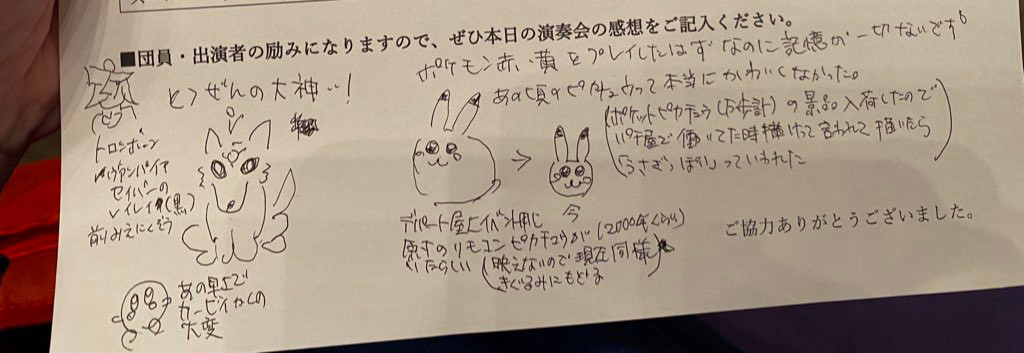 ■団員・出演者の励みになりますので、ぜひ本日の演奏会の感想をご記入ください。
とつぜんの大神‥!
トロンボーン
ヴァンパイア
セイバーの
レイレイ(黒)
前りみえにくそう
あの早さで
カービィかくの
大変
ポケモン赤・黄をプレイしたはずなのに記憶が一切ないです
あの頃のピカチュウって本当にかわいくなかった。
(ポケットピカチュウ(万歩計)の景品入荷したので
パチ屋で働いてた時描けって言われて描いたら
「うさぎっぽい」っていわれた)
→
今
デパート屋上イベント用に
原寸のリモコンピカチュウが(2000年くらい)
いたらしい(映えないので現在同様
きぐるみにもどる)
ご協力ありがとうございました。